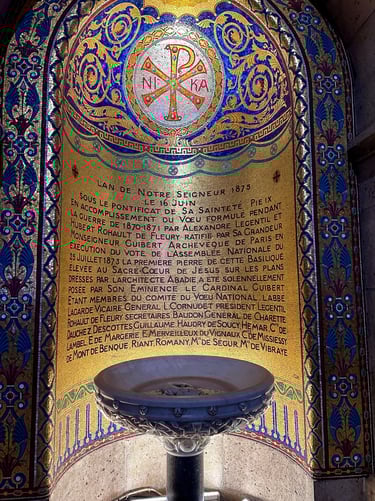 NI KA
LAN DE NOTRE SEIGNEUR 1875
LE 16 JUIN
SOUS LE PONTIFICAT DE SA SAINTETÉ PIE IX
EN ACCOMPLISSEMENT DU VŒU FORMULÉ PENDANT
LA GUERRE DE 1870-1871 PAR ALEXANDRE LEGENTIL ET
HUBERT ROHAULT DE FLEURY RATIFIÉ PAR SA GRANDEUR
MONSEIGNEUR GUIBERT ARCHEVÊQUE DE PARIS EN
EXÉCUTION DU VOTE DE L'ASSEMBLÉE NATIONALE DU
23 JUILLET 1873 LA PREMIÈRE PIERRE DE CETTE BASILIQUE
ÉLEVÉE AU SACRÉ-CŒUR DE JÉSUS SUR LES PLANS
DRESSÉS PAR L'ARCHITECTE ABADIE A ÉTÉ SOLENNELLEMENT
POSÉE PAR SON ÉMINENCE LE CARDINAL GUIBERT
ÉTANT MEMBRES DU COMITÉ DU VŒU NATIONAL, L'ABBÉ
LAGARDE VICAIRE GÉNÉRAL L. CORNUDET PRÉSIDENT LEGENTIL
ROHAULT DE FLEURY SECRÉTAIRES BAUDON GÉNÉRAL DE CHARETTE
DAUCHEZ DESCOTTES GUILLAUME HAUDRY DE SOUCY HÉMAR Cte DE
LAMBEL E. DE MARGERIE E. MERVEILLEUX DU VIGNAUX C. DE MISSIESSY
DE MONT DE BENQUE RIANT ROMANY Mis DE SÉGUR Mis DE VIBRAYE